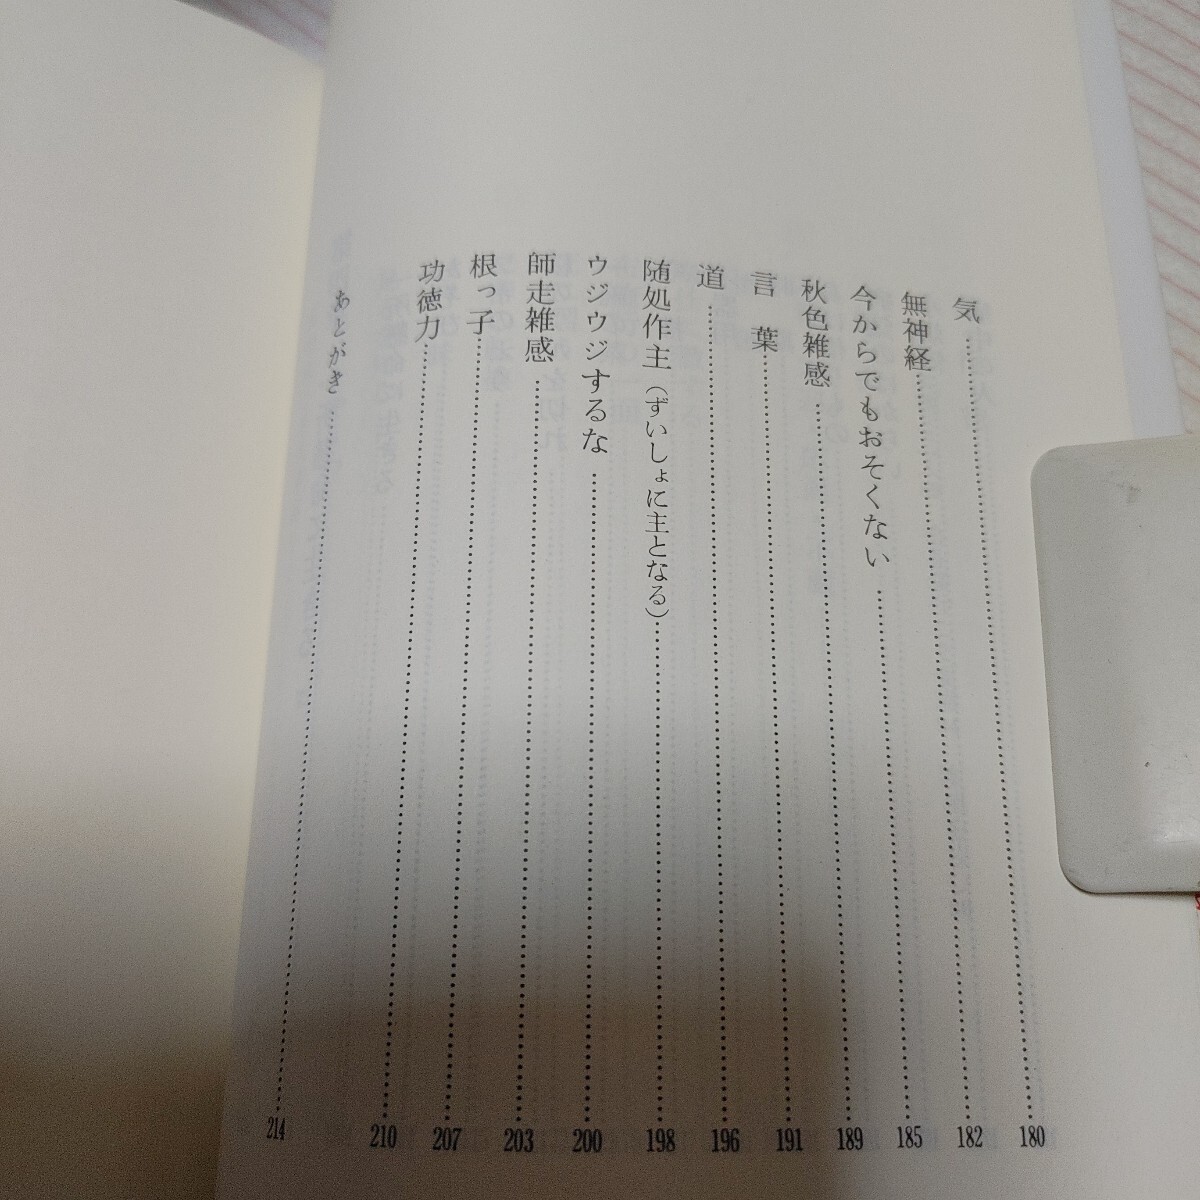 気……180
無神経……182
今からでもおそくない……185
秋色雑感……189
言葉……191
道……196
随処作主（ずいしょに主となる）……198
ウジウジするな……200
師走雑感……203
根っ子……207
功徳力……210
あとがき……214